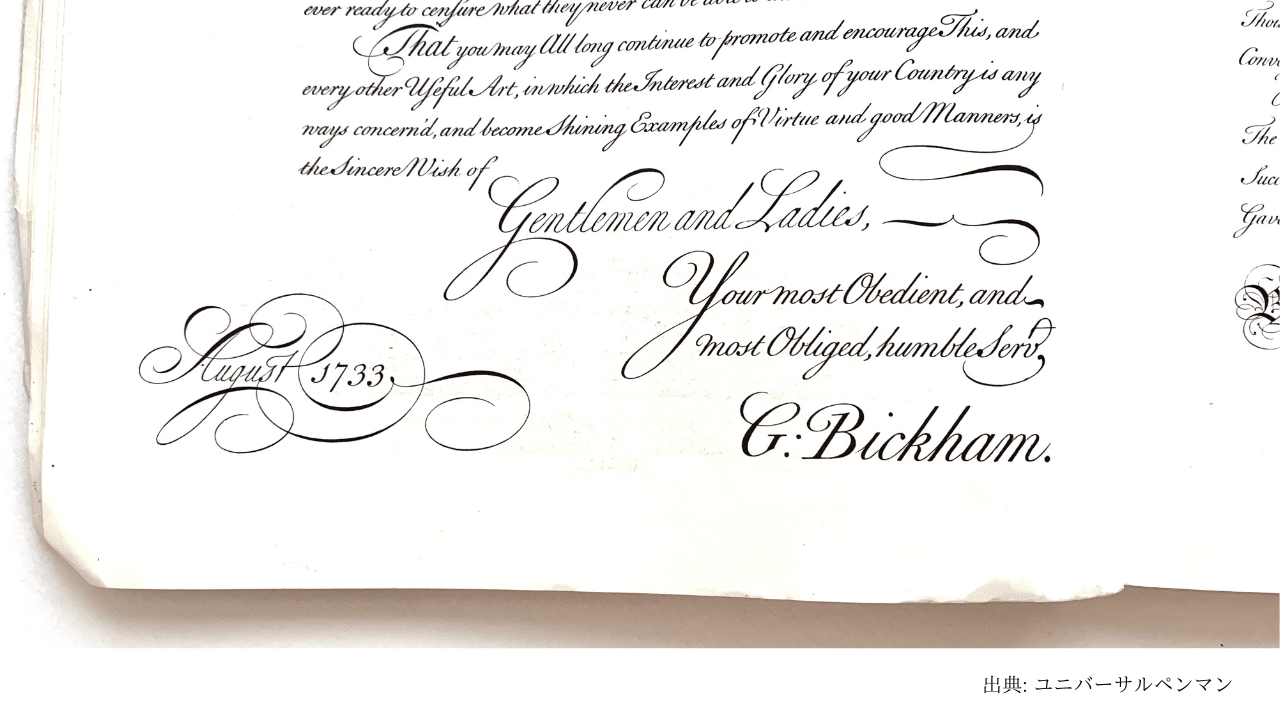 ever ready to cenſure what they never can be able to
That you may All long continue to promote and encourage This, and
every other Uſeful Art, in which the Interest and Glory of your Country is any
ways concern'd, and become Shining Examples of Virtue and good Manners, is
the Sincere Wish of
Gentlemen and Ladies,
Your most Obedient, and
most Obliged, humble Servt,
August 1733.
G: Bickham.
The
出典: ユニバーサルペンマン